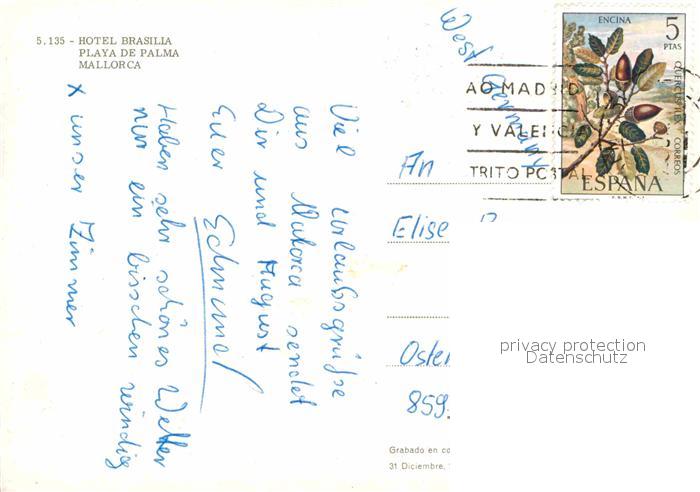 5.135 - HOTEL BRASILIA
PLAYA DE PALMA
MALLORCA
Viel Urlaubsgrüße
aus Mallorca sendet
Dir und August
Euer Edmund
Haben sehr schönes Wetter
nur ein bisschen windig
x unser Zimmer
West Germany
ENCINA
5
PTAS
CORREOS
ESPAÑA
AO MADRID
Y VALENCIA
TRITO POSTAL
An
Elise
859
privacy protection
Datenschutz
Grabado en
31 Diciembre,